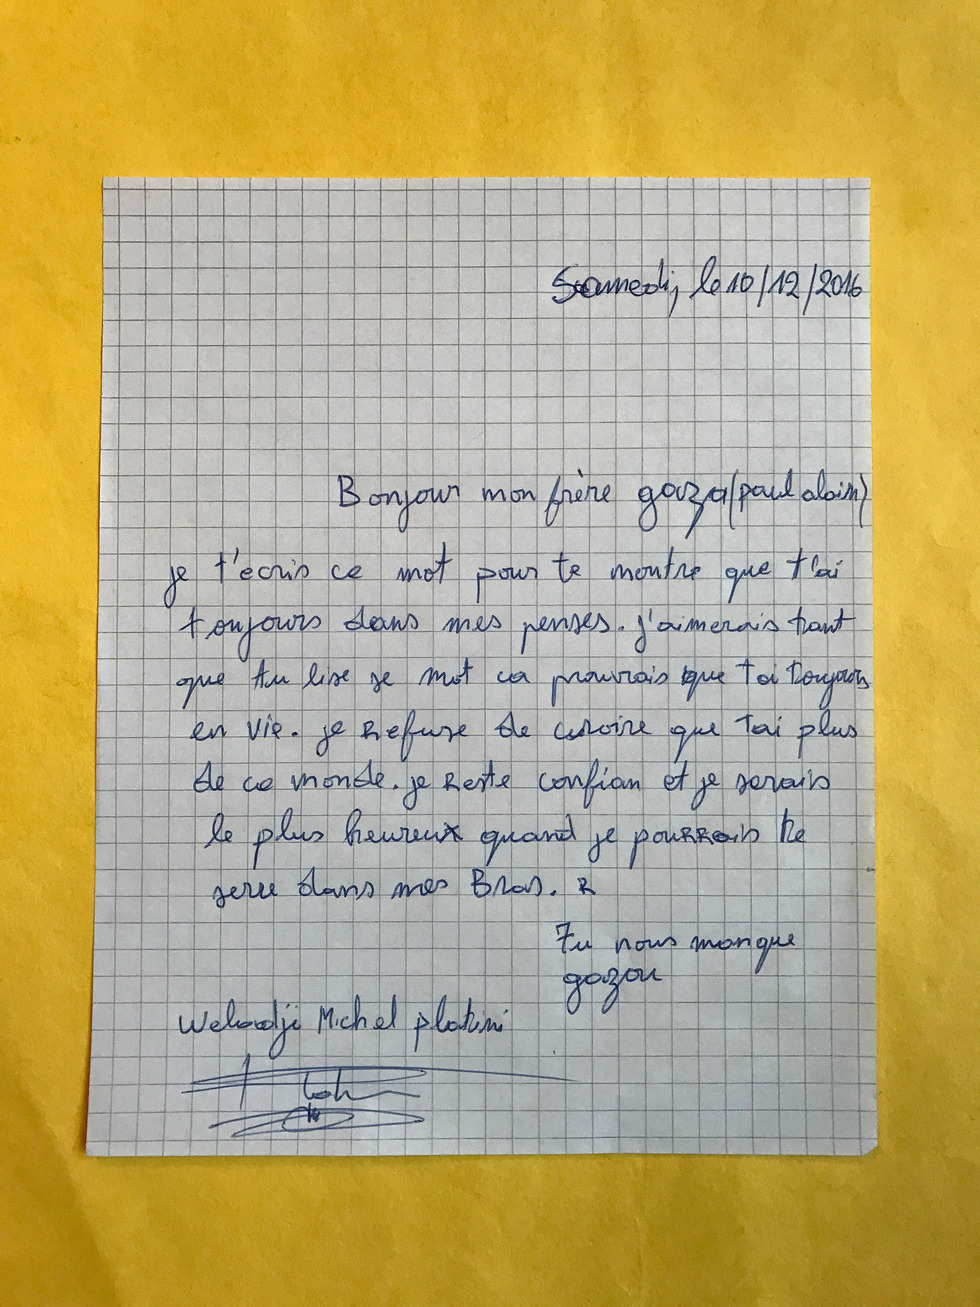 Samedi, le 10/12/2016
Bonjour mon frère gaza (paul alain)
je t'ecris ce mot pour te montre que t'ai
toujours dans mes penses. j'aimerais tant
que tu lise se mot ca prouvrais que tai toujours
en vie. je Refuse de croire que Tai plus
de ce monde. je Reste confian et je serais
le plus heureux quand je pourrais te
serre dans mes Bras. R
Tu nous manque
gazou
Welaadji Michel platini